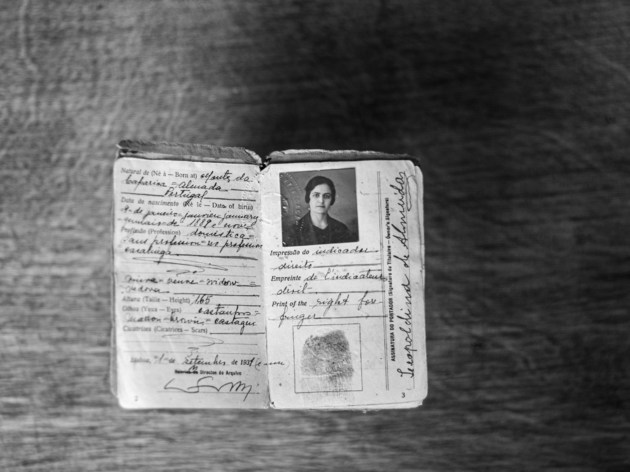 Natural de (Né à — Born at) Monte da
Caparica = Almada
Portugal
Data do nascimento (Né le — Date of birth)
de janeiro-janvier-january
de
Profissão (Profession) doméstica =
sans profession = no profession
viuva = veuve = widow =
Altura (Taille — Height) 1,65
Olhos (Yeux — Eyes) castanhos =
= brown =
Cicatrizes (Cicatrices — Scars)
Lisboa, de Setembro de 193
Director do Arquivo
2
Impressão do indicador
direito
Empreinte de l'indicateur
droit
Print of the right fore
finger
ASSINATURA DO PORTADOR (Signature du Titulaire — Owner's Signature)
Leopoldina de Almeida
3